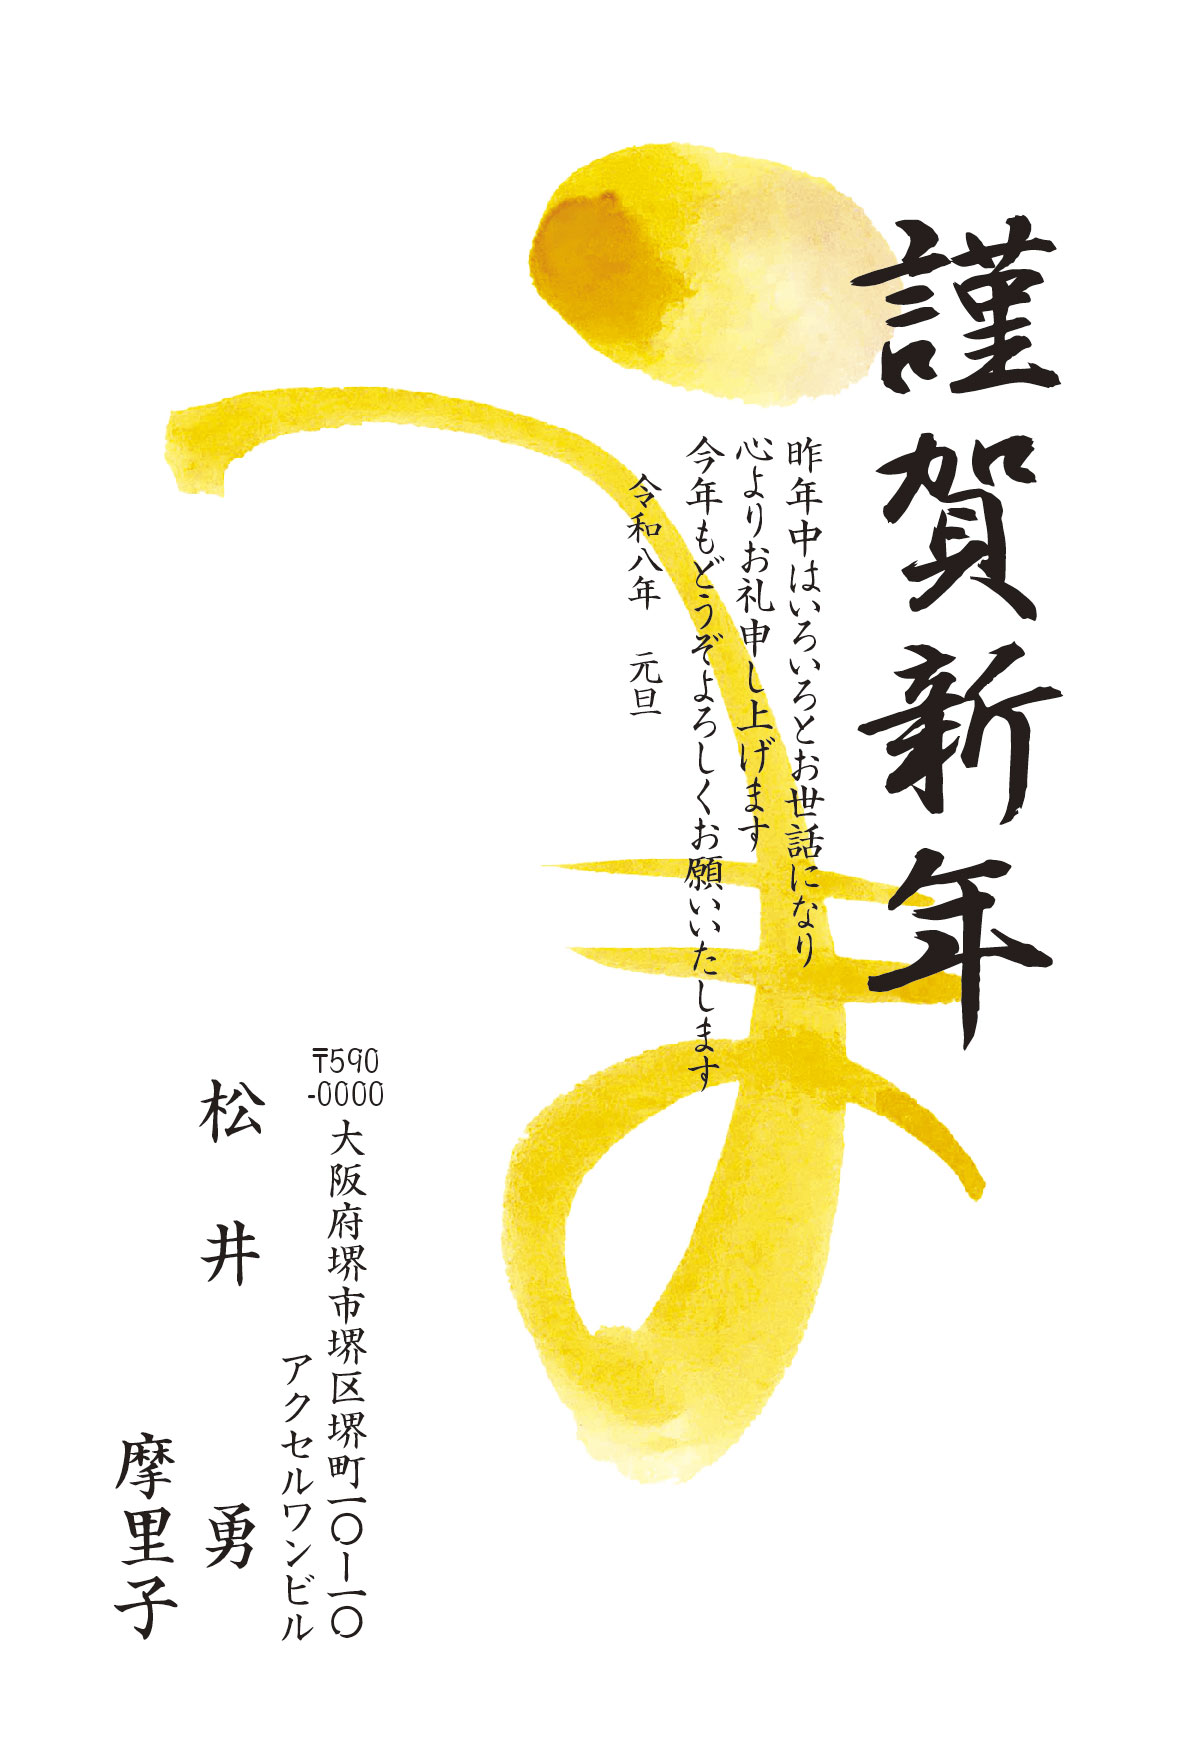 謹賀新年
昨年中はいろいろとお世話になり
心よりお礼申し上げます
今年もどうぞよろしくお願いいたします
令和八年　元旦
〒590
-0000
大阪府堺市堺区堺町一〇ー一〇
アクセルワンビル
松井　勇
摩里子